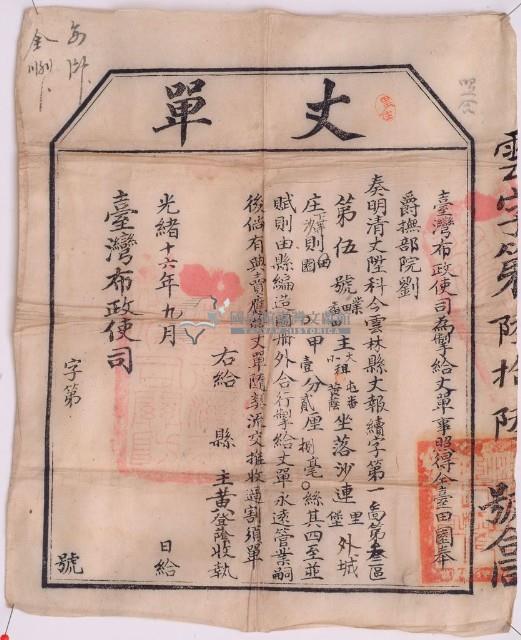 丈單
臺灣布政使司為掣給丈單事照得全臺田園奉
爵撫部院劉
奏明清丈陞科今雲林縣丈報續字第一

第伍號

主

坐落沙連

外城
庄

則

甲壹分貳厘捌毫〇絲其四至並
賦則由縣編造圖冊外合行掣給丈單永遠管業嗣
後倘有典賣應將丈單隨契流交推收過割須單
右給縣
主黃登蔭收執
光緒十六年九月
日給
臺灣布政使司
字第
號
雲字第陸拾陸號合同
國史館臺灣文獻館
TAIWAN HISTORICA